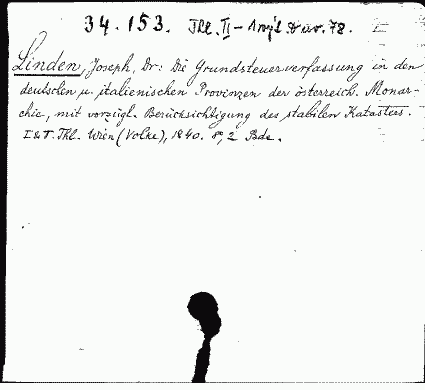 34.153. Thl. II - 
Linden, Joseph, Dr: Die Grundsteuerverfassung in den
deutschen u. italienischen Provinzen der österreich. Monar-
chie, mit vorzügl. Berücksichtigung des stabilen Katasters.
I & II. Thl. Wien (Volke), 1840. 8°, 2 Bde.